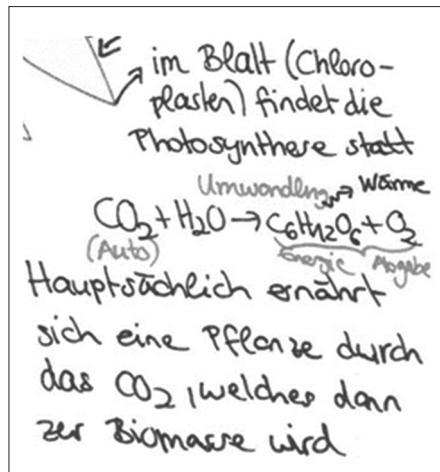 im Blatt (Chloro-
plasten) findet die
Photosynthese statt
Umwandlung → Wärme
CO₂ + H₂O → C₆H₁₂O₆ + O₂
(Auto) Energie Abgabe
Hauptsächlich ernährt
sich eine Pflanze durch
das CO₂, welches dann
zur Biomasse wird